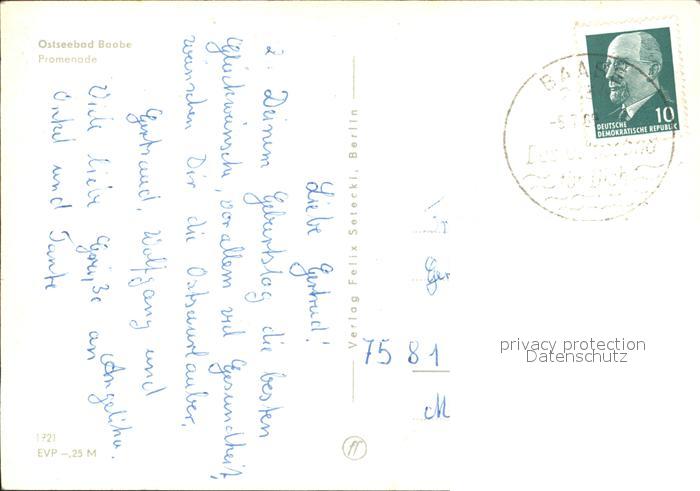 Ostseebad Baabe
Promenade
Liebe Gertrud!
z. Deinem Geburtstag die besten
Glückwünsche, vor allem viel Gesundheit,
wünschen Dir die Ostseeurlauber,
Gertraud, Wolfgang und
Viele liebe Grüße an Angelika.
Onkel und Tante
1721
EVP -,25 M
Verlag Felix Setecki, Berlin
BAABE
10
DEUTSCHE
DEMOKRATISCHE REPUBLIK
Ger
75 81
M
privacy protection
Datenschutz